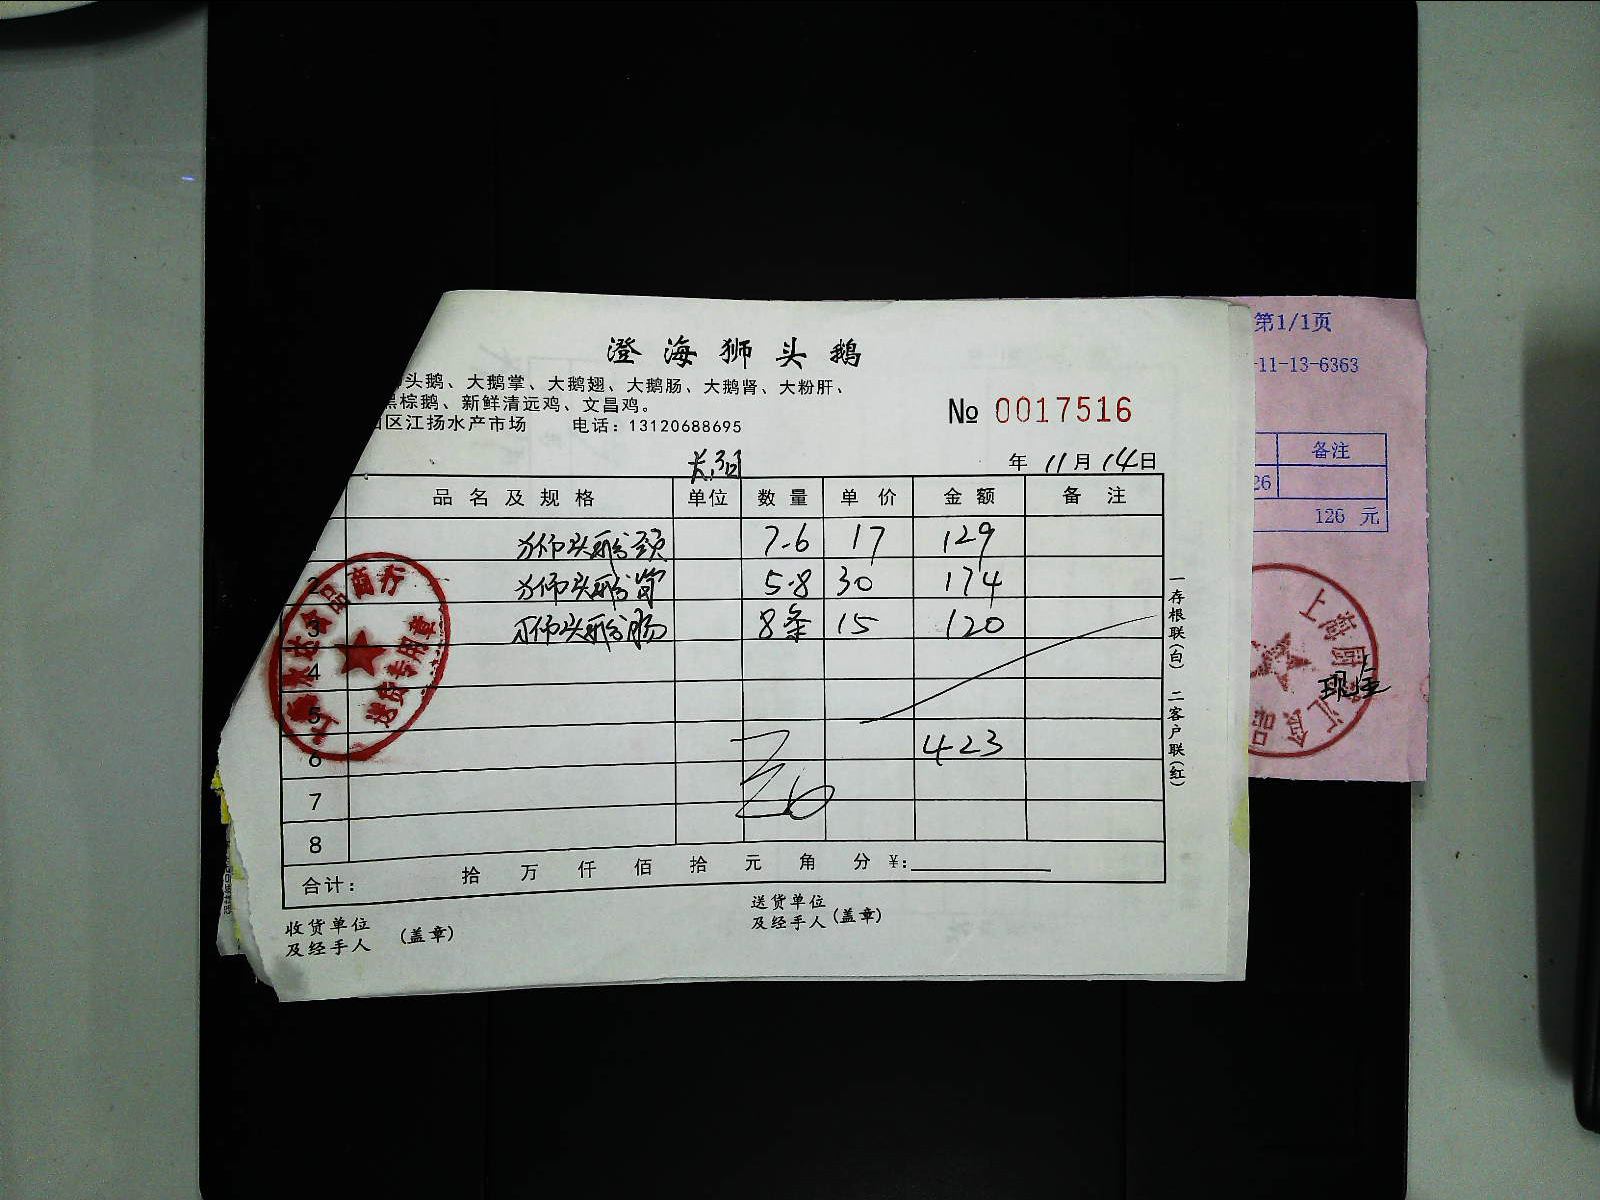 澄海狮头鹅
头鹅、大鹅掌、大鹅翅、大鹅肠、大鹅肾、大粉肝、
黑棕鹅、新鲜清远鸡、文昌鸡。
区江扬水产市场 电话：13120688695
№ 0017516
年 11月14日
品名及规格 单位 数量 单价 金额 备注
狮头鹅颈 7.6 17 129
2 狮头鹅 5.8 30 174
3 狮头鹅肠 8条 15 120
4
5
6 423
7
8
合计： 拾 万 仟 佰 拾 元 角 分 ￥：
收货单位
及经手人 （盖章）
送货单位
及经手人（盖章）
一存根联（白） 二客户联（红）
食品商行
送货专用章
第1/1页
-11-13-6363
备注
26
126 元
上海厨汇食品